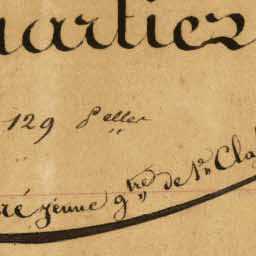 uartier
129 Pelles
ré jeune gtre de 1re Cla